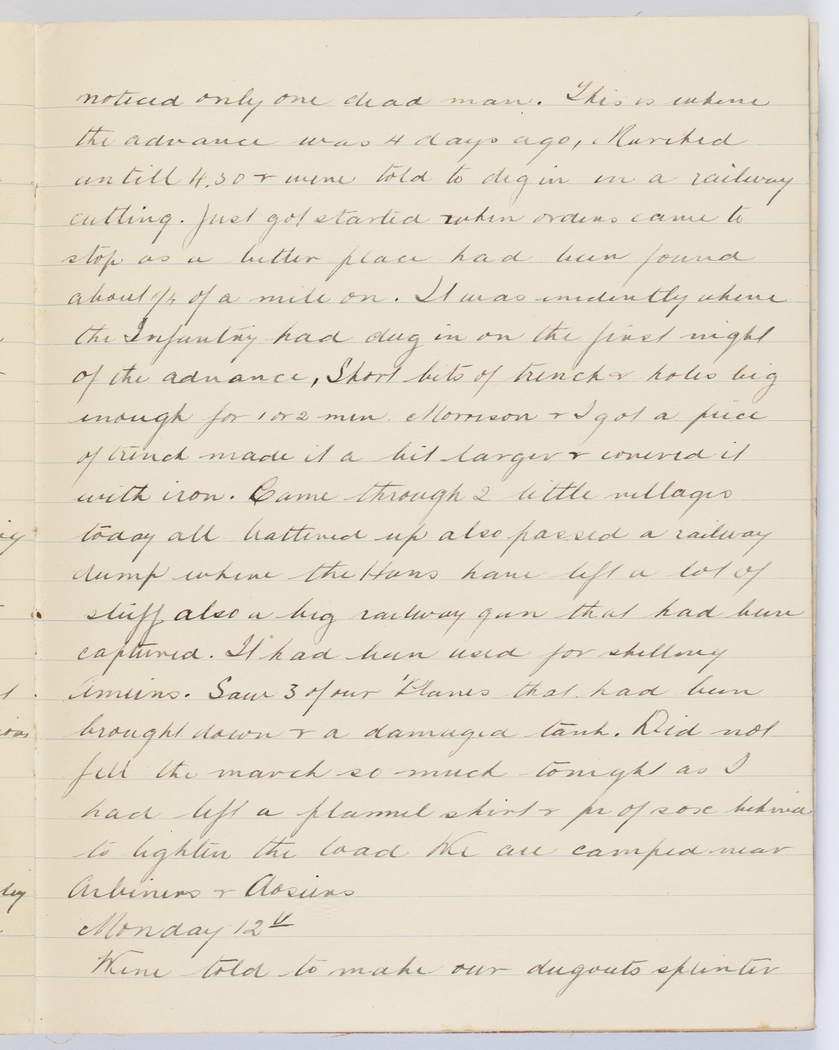 noticed only one dead man. This is where
the advance was 4 days ago, Marched
untill 4.30 & were told to dig in in a railway
cutting. Just got started when orders came to
stop as a better place had been found
about 1/4 of a mile on. It was evidently where
the Infantry had dug in on the first night
of the advance, Short bits of trench & holes big
enough for 1 or 2 men. Morrison & I got a piece
of trench made it a bit larger & covered it
with iron. Came through 2 little villages
today all battered up also passed a railway
dump where the Huns have left a lot of
stuff also a big railway gun that had been
captured. It had been used for shelling
Amiens. Saw 3 of our 'Planes that had been
brought down & a damaged tank. Did not
fell the march so much tonight as I
had left a flannel shirt & pr of sox behind
to lighten the load We are camped near
&
Monday 12th
Were told to make our dugouts splinter